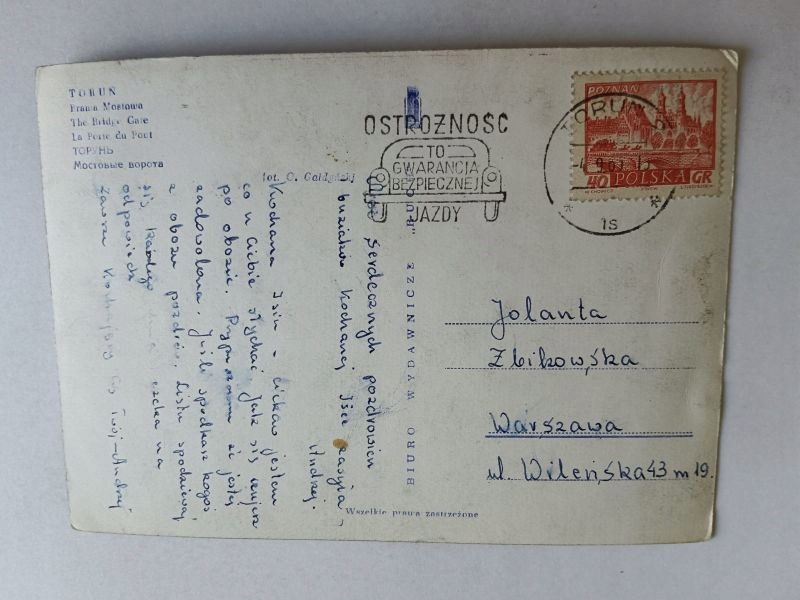 TORUŃ
Brama Mostowa
The Bridge Gate
La Porte du Pont
ТОРУНЬ
Мостовые ворота
fot. C.
OSTROŻNOŚĆ
TO
GWARANCJA
BEZPIECZNEJ
JAZDY
TORUŃ
1s
POZNAŃ
40 POLSKA GR
serdecznych pozdrowień
buziaków Kochanej Isi zasyła
Andrzej.
Kochana Isiu - ciekaw jestem
co u Ciebie słychać, jak się czujesz
po obozie. Przypuszczam że jesteś
zadowolona. Jeśli spodkasz kogoś
z obozu pozdrów. Listu spodziewaj
się każdego czeka na
odpowiedź
zawsze Kochający Cię Twój-Andrzej
BIURO WYDAWNICZE „RUCH"
Jolanta
Zbikowska
Warszawa
ul. Wileńska 43 m 19.
Wszelkie prawa zastrzeżone